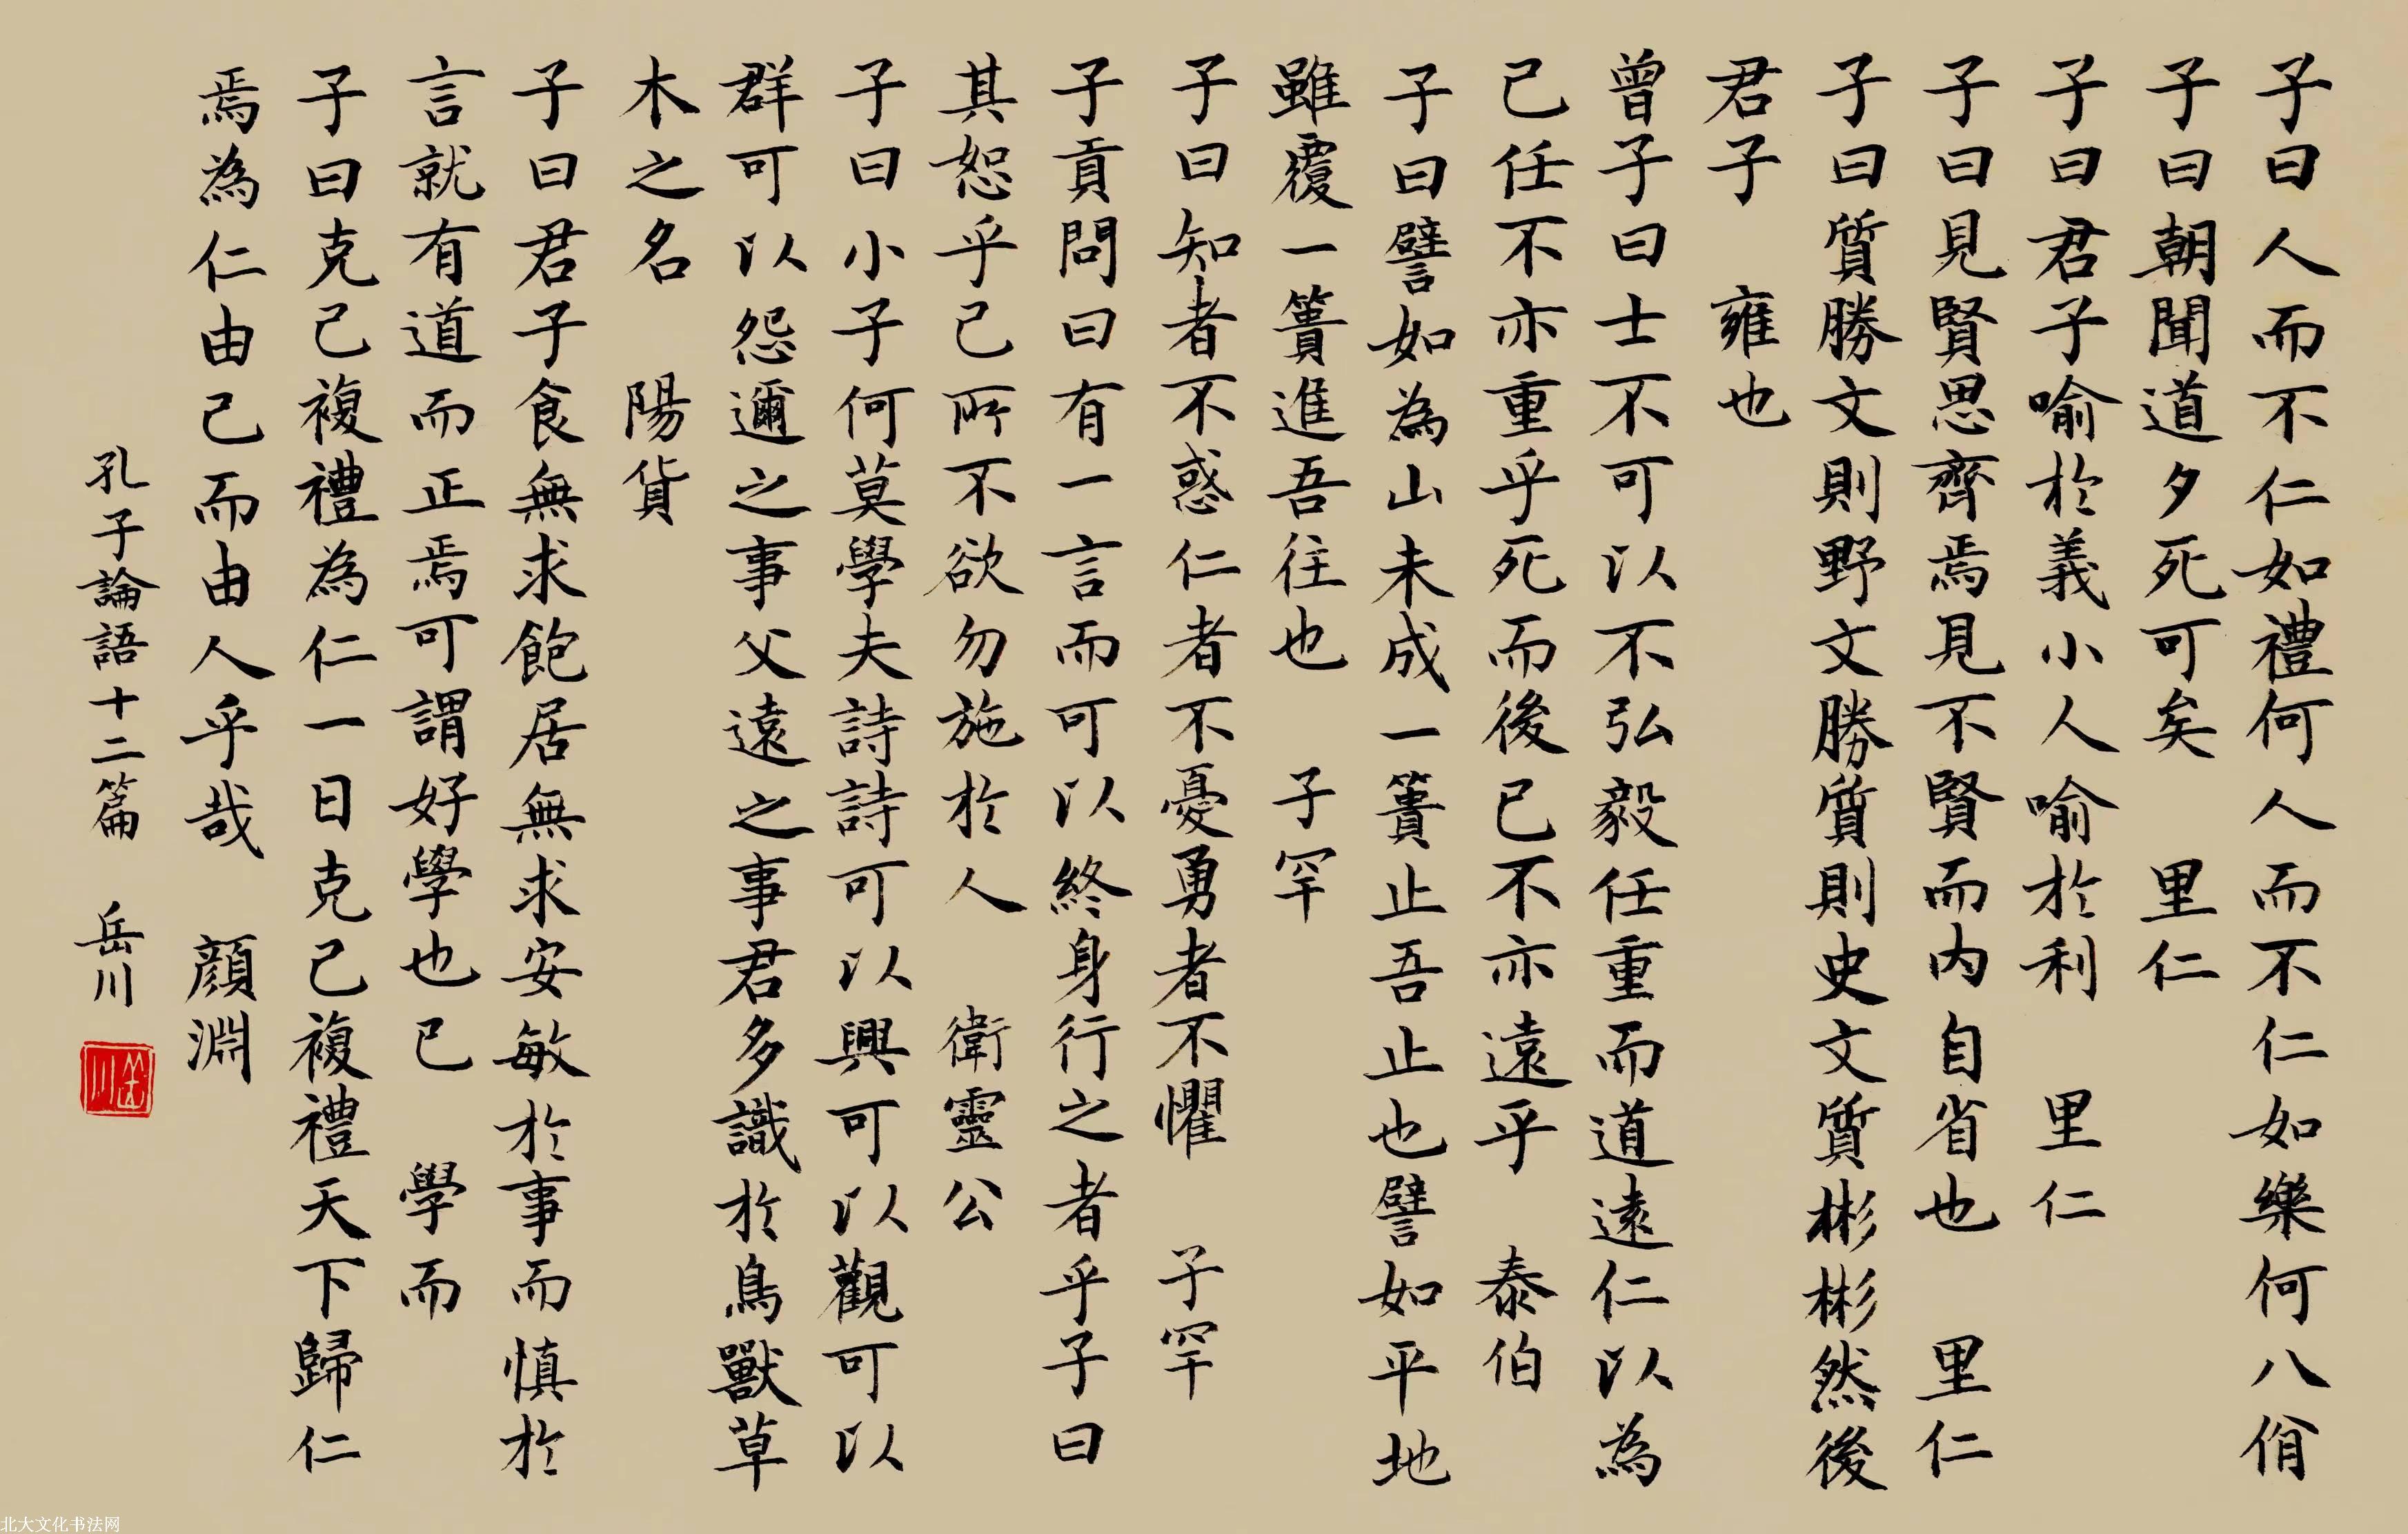 子曰人而不仁如禮何人而不仁如樂何八佾
子曰朝聞道夕死可矣　里仁
子曰君子喻於義小人喻於利　里仁
子曰見賢思齊焉見不賢而内自省也　里仁
子曰質勝文則野文勝質則史文質彬彬然後
君子　雍也
曾子曰士不可以不弘毅任重而道遠仁以為
己任不亦重乎死而後已不亦遠乎　泰伯
子曰譬如為山未成一簣止吾止也譬如平地
雖覆一簣進吾往也　子罕
子曰知者不惑仁者不憂勇者不懼　子罕
子貢問曰有一言而可以終身行之者乎子曰
其恕乎己所不欲勿施於人　衛靈公
子曰小子何莫學夫詩詩可以興可以觀可以
群可以怨邇之事父遠之事君多識於鳥獸草
木之名　陽貨
子曰君子食無求飽居無求安敏於事而慎於
言就有道而正焉可謂好學也已　學而
子曰克己複禮為仁一日克己複禮天下歸仁
焉為仁由己而由人乎哉　顏淵
孔子論語十二篇　岳川
岳川
北大文化书法网